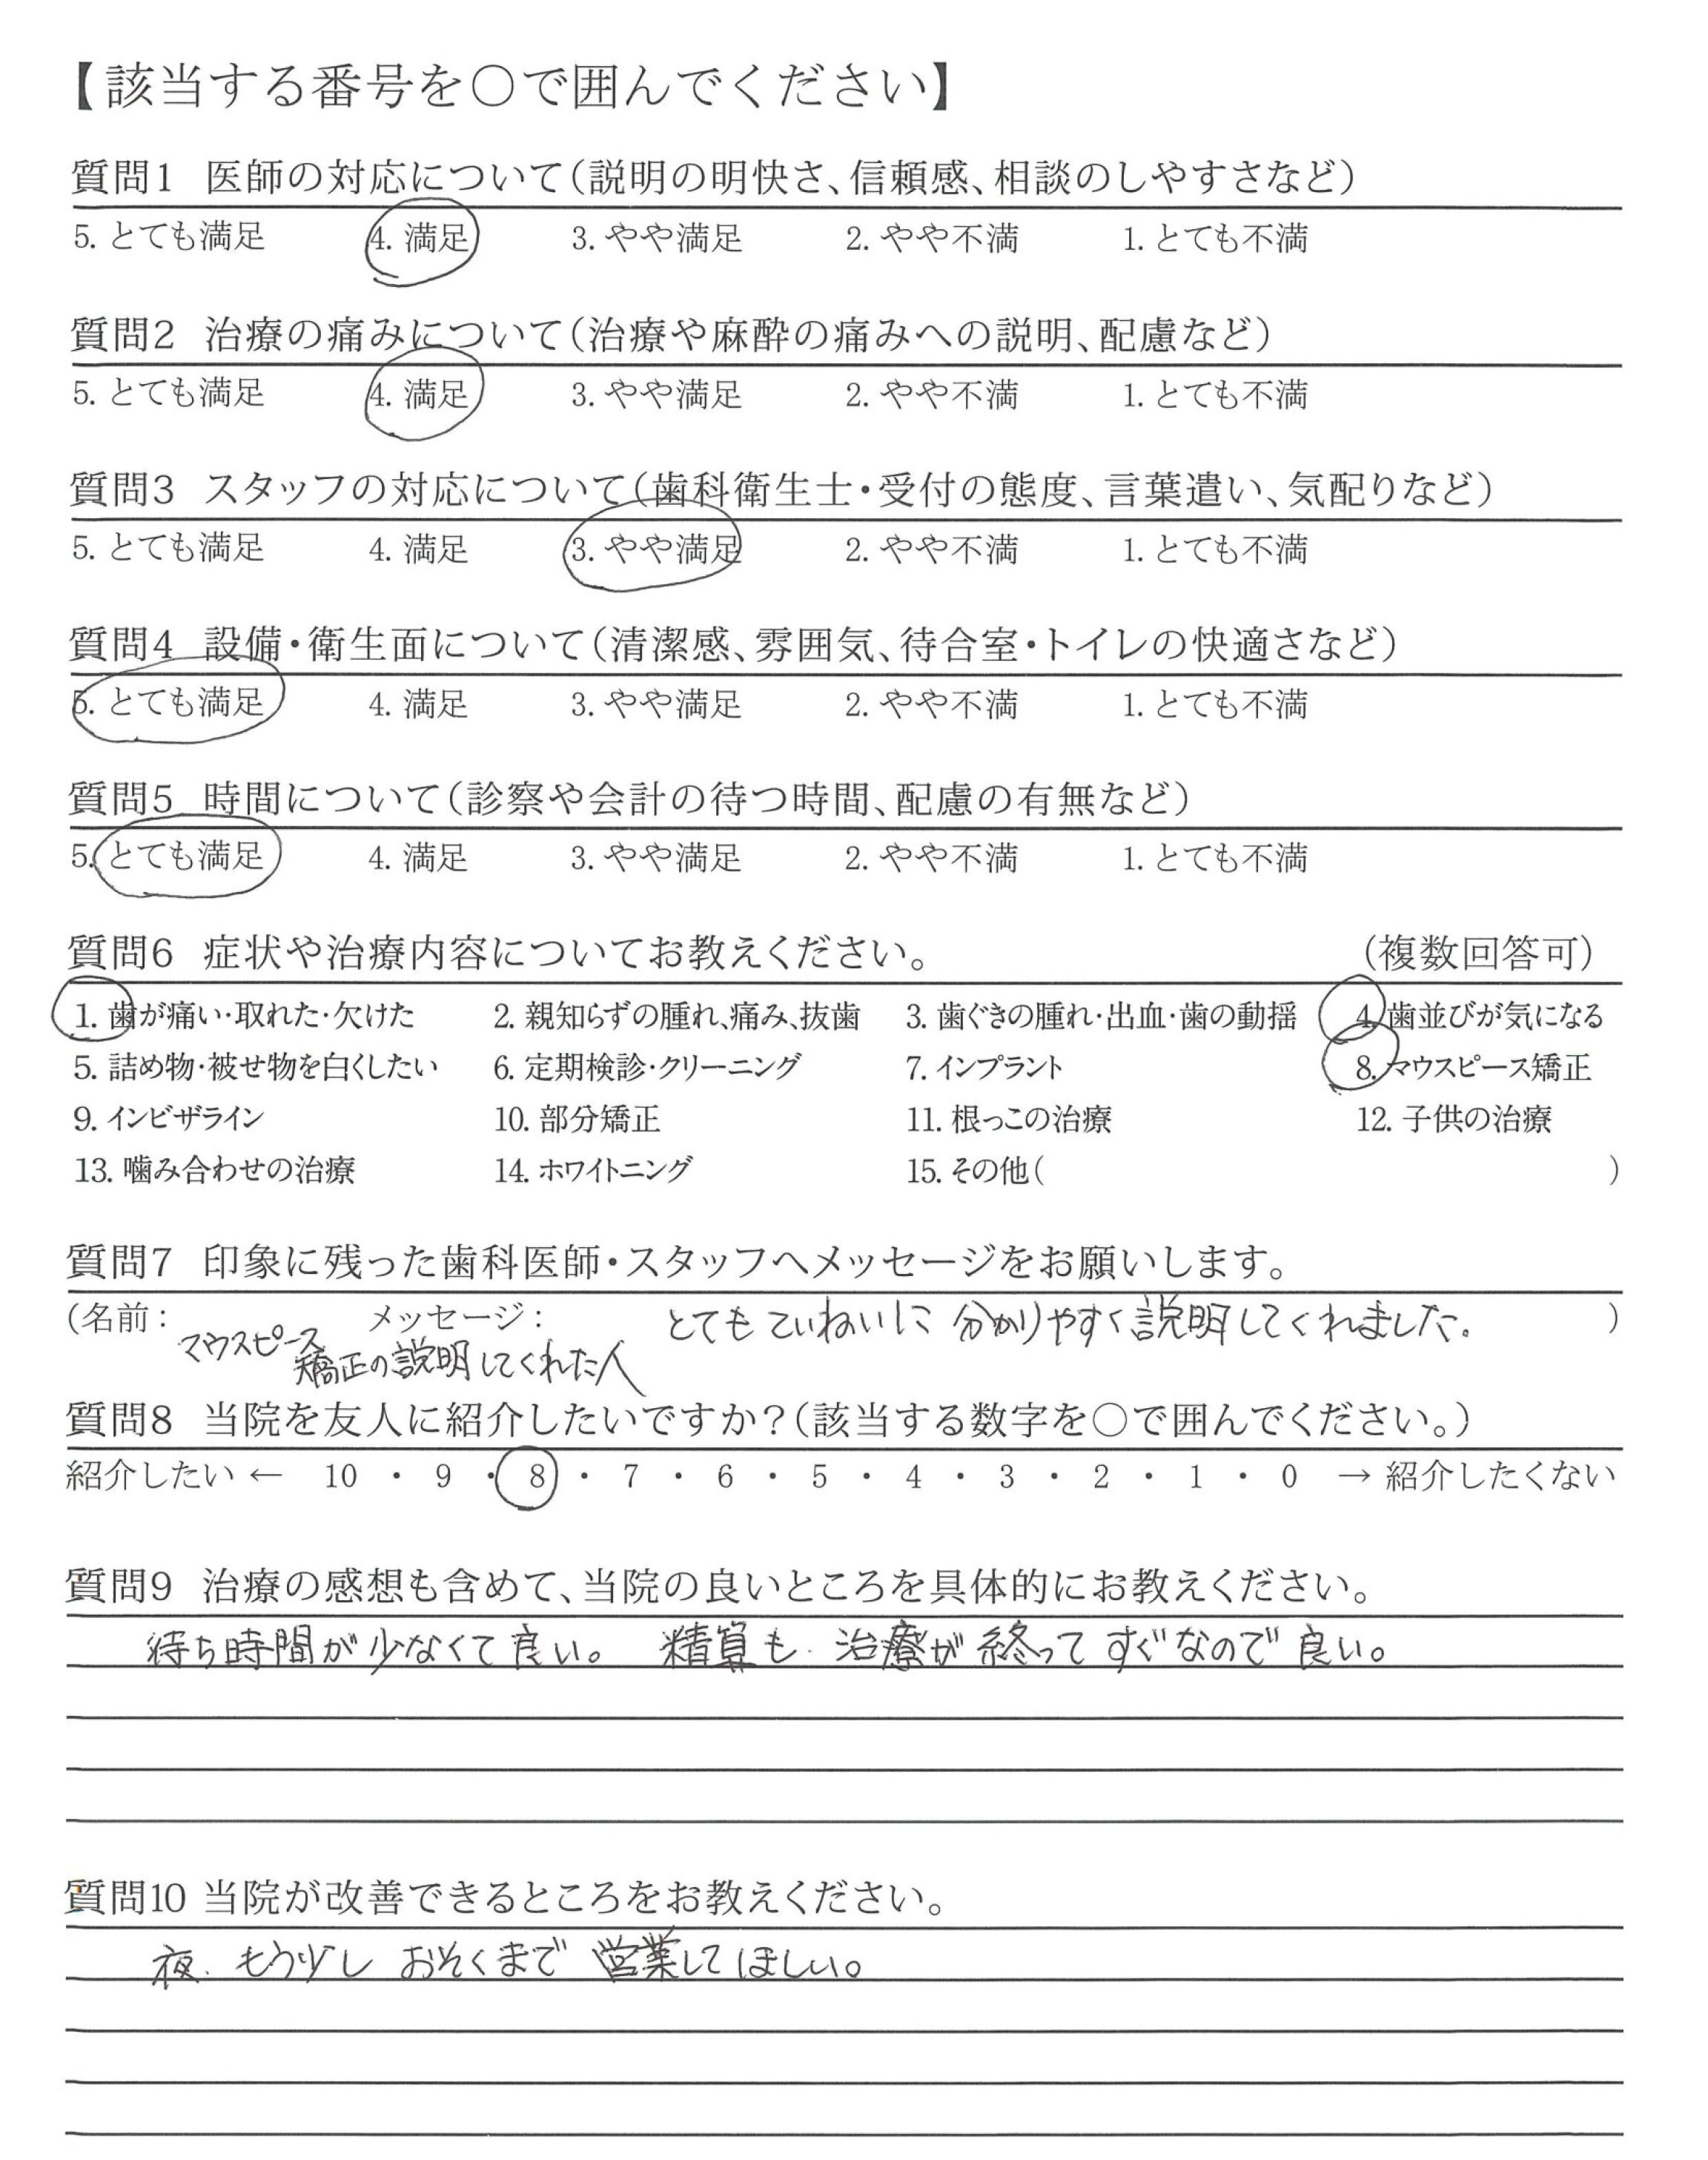 【該当する番号を〇で囲んでください】
質問1 医師の対応について(説明の明快さ、信頼感、相談のしやすさなど)
5. とても満足 4. 満足 3. やや満足 2. やや不満 1. とても不満
質問2 治療の痛みについて(治療や麻酔の痛みへの説明、配慮など)
5. とても満足 4. 満足 3. やや満足 2. やや不満 1. とても不満
質問3 スタッフの対応について(歯科衛生士・受付の態度、言葉遣い、気配りなど)
5. とても満足 4. 満足 3. やや満足 2. やや不満 1. とても不満
質問4 設備・衛生面について(清潔感、雰囲気、待合室・トイレの快適さなど)
5. とても満足 4. 満足 3. やや満足 2. やや不満 1. とても不満
質問5 時間について(診察や会計の待つ時間、配慮の有無など)
5. とても満足 4. 満足 3. やや満足 2. やや不満 1. とても不満
質問6 症状や治療内容についてお教えください。 (複数回答可)
1. 歯が痛い・取れた・欠けた 2. 親知らずの腫れ、痛み、抜歯 3. 歯ぐきの腫れ・出血・歯の動揺 4. 歯並びが気になる
5. 詰め物・被せ物を白くしたい 6. 定期検診・クリーニング 7. インプラント 8. マウスピース矯正
9. インビザライン 10. 部分矯正 11. 根っこの治療 12. 子供の治療
13. 噛み合わせの治療 14. ホワイトニング 15. その他( )
質問7 印象に残った歯科医師・スタッフへメッセージをお願いします。
(名前: メッセージ: とてもていねいに 分かりやすく説明してくれました。 )
マウスピース
矯正の説明してくれた人
質問8 当院を友人に紹介したいですか?(該当する数字を〇で囲んでください。)
紹介したい ← 10 ・ 9 ・ 8 ・ 7 ・ 6 ・ 5 ・ 4 ・ 3 ・ 2 ・ 1 ・ 0 → 紹介したくない
質問9 治療の感想も含めて、当院の良いところを具体的にお教えください。
待ち時間が少なくて良い。 精算も 治療が終ってすぐなので良い。
質問10 当院が改善できるところをお教えください。
夜、もう少し おそくまで 営業してほしい。